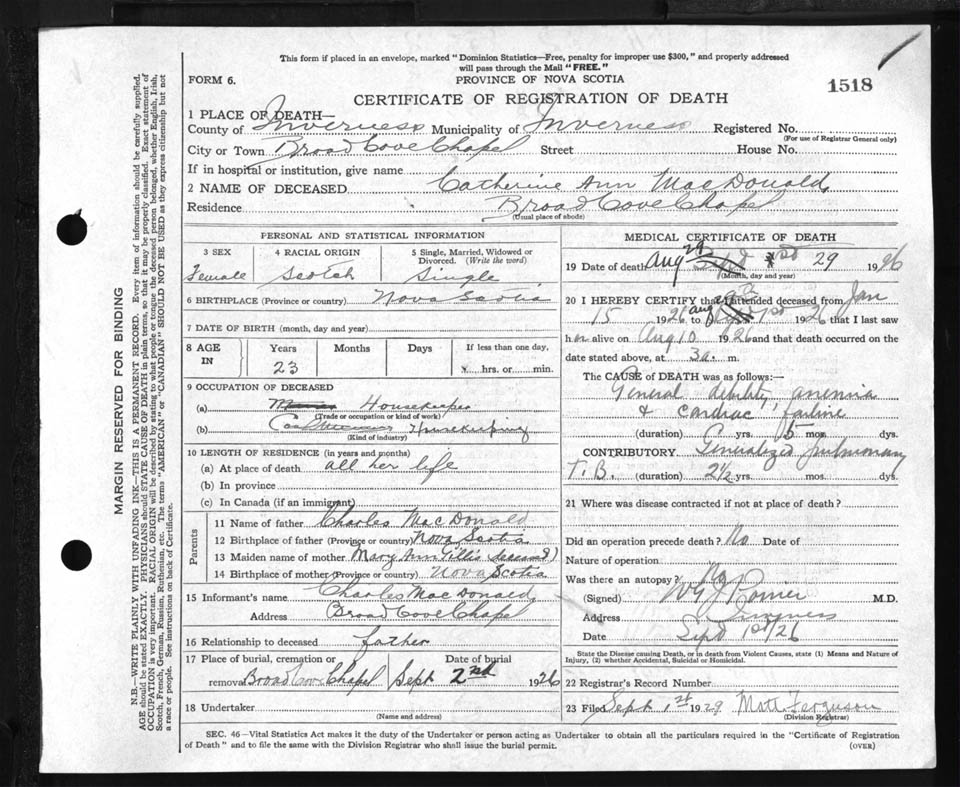 This form if placed in an envelope, marked "Dominion Statistics—Free, penalty for improper use $300," and properly addressed
will pass through the Mail "FREE."
FORM 6.
PROVINCE OF NOVA SCOTIA
1518
CERTIFICATE OF REGISTRATION OF DEATH
1 PLACE OF DEATH—
County of Inverness Municipality of Inverness Registered No.
(For use of Registrar General only)
City or Town Broad Cove Chapel Street House No.
If in hospital or institution, give name
2 NAME OF DECEASED Catherine Ann MacDonald
Residence Broad Cove Chapel
(Usual place of abode)
PERSONAL AND STATISTICAL INFORMATION
3 SEX 4 RACIAL ORIGIN 5 Single, Married, Widowed or
Divorced. (Write the word)
Female Scotch Single
6 BIRTHPLACE (Province or country) Nova Scotia
7 DATE OF BIRTH (month, day and year)
8 AGE IN Years Months Days If less than one day,
23 hrs. or min.
9 OCCUPATION OF DECEASED
(a) Housekeeper
(Trade or occupation or kind of work)
(b) Housekeeping
(Kind of industry)
10 LENGTH OF RESIDENCE (in years and months)
(a) At place of death all her life
(b) In province
(c) In Canada (if an immigrant)
Parents
11 Name of father Charles MacDonald
12 Birthplace of father (Province or country) Nova Scotia
13 Maiden name of mother Mary Ann Gillis (deceased)
14 Birthplace of mother (Province or country) Nova Scotia
15 Informant's name Charles MacDonald
Address Broad Cove Chapel
16 Relationship to deceased father
17 Place of burial, cremation or Date of burial
removal Broad Cove Chapel Sept 2nd 1926
18 Undertaker
(Name and address)
MEDICAL CERTIFICATE OF DEATH
19 Date of death Aug 29 29 1926
(Month, day and year)
20 I HEREBY CERTIFY that I attended deceased from Jan
15 1926 to Aug 1926 that I last saw
h er alive on Aug 10 1926 and that death occurred on the
date stated above, at 3 a. m.
The CAUSE of DEATH was as follows:—
General debility, anemia
& cardiac failure
(duration) yrs. 5 mos. dys.
CONTRIBUTORY Generalized pulmonary
T.B. (duration) 2½ yrs. mos. dys.
21 Where was disease contracted if not at place of death?
Did an operation precede death? No Date of
Nature of operation
Was there an autopsy? No
(Signed) M.D.
Address Inverness
Date Sept 1st/26
State the Disease causing Death, or in death from Violent Causes, state (1) Means and Nature of
Injury, (2) whether Accidental, Suicidal or Homicidal.
22 Registrar's Record Number
23 Filed Sept 1st 1929 Matt Ferguson
(Division Registrar)
SEC. 46—Vital Statistics Act makes it the duty of the Undertaker or person acting as Undertaker to obtain all the particulars required in the "Certificate of Registration
of Death" and to file the same with the Division Registrar who shall issue the burial permit.
(OVER)
MARGIN RESERVED FOR BINDING
N.B.—WRITE PLAINLY WITH UNFADING INK—THIS IS A PERMANENT RECORD. Every item of information should be carefully supplied.
AGE should be stated EXACTLY. PHYSICIANS should STATE CAUSE OF DEATH in plain terms, so that it may be properly classified. Exact statement of
OCCUPATION is very important. RACIAL ORIGIN will be described by stating to what people or tongue the deceased person belonged, whether English, Irish,
Scotch, French, German, Russian, Ruthenian, etc. The terms "AMERICAN" or "CANADIAN" SHOULD NOT BE USED as they express citizenship but not
a race or people. See instructions on back of Certificate.